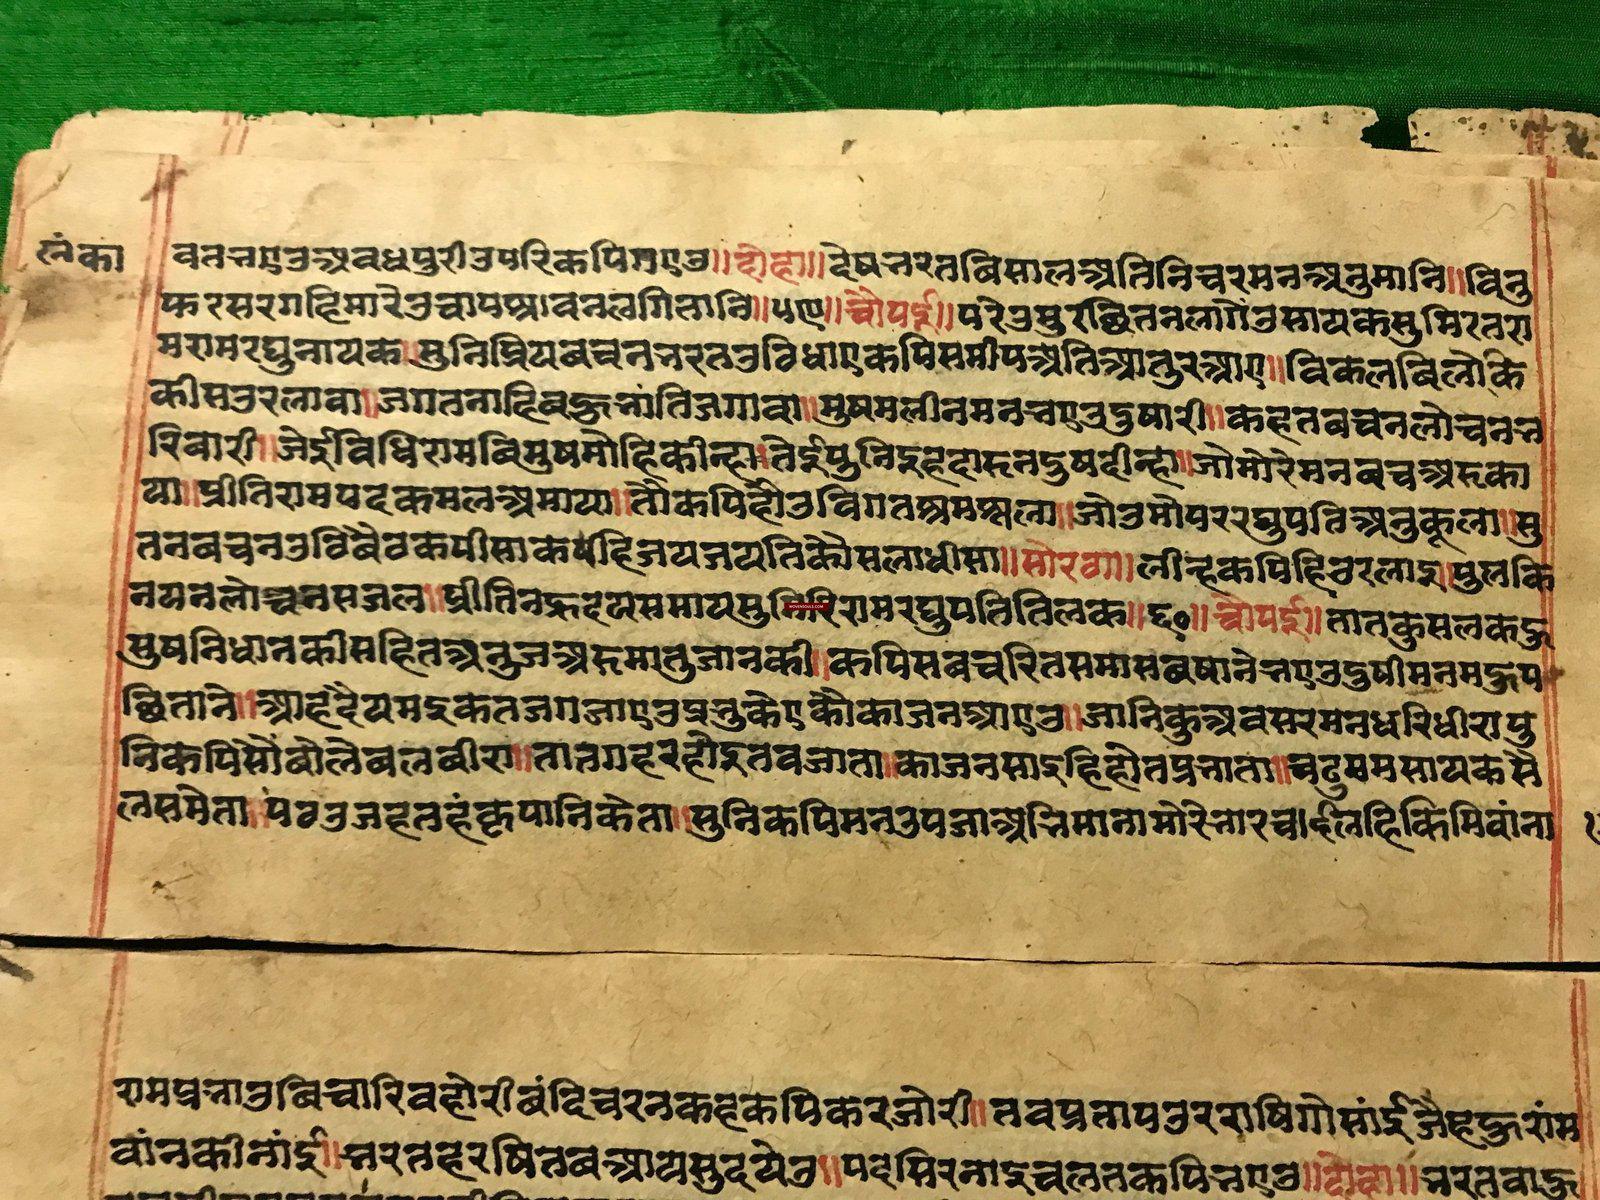 लंका
वतभएउअवधपुरीउपरिकपिगएउ॥दोहा॥देषाभरतबिसालअतिनिचरमनअनुमानि॥विनु
फरसरगहिमारेउचापश्रावनलगितानि॥५९॥चौपई॥परेउमुरछितनलागेउसायकसुमिरतरा
मरामरघुनायक॥सुनिप्रियबचनभरतउठिधाएकपिसमीपअतिआतुरआए॥विकलबिलोकि
कीसउरलावा॥जगतनाहिबहुभांतिजगावा॥मुषमलीनमनभएउदुषारी॥कहतबचनलोचनभ
रिवारी॥जेईविधिरामबिमुषमोहिकीन्हा॥तेईपुनिदुहदारुनदुषदीन्हा॥जौमोरेमनबचअरुका
या॥प्रीतिरामपदकमलअमाया॥तौकपिहौउविगतश्रमश्रूला॥जौउमौपररघुपतिअनुकूला॥सु
तनबचनउठिबैठकपीसाकहिजयजयतिकौसलाधीसा॥सोरठा॥लीन्हकपिहिउरलाइ॥पुलकि
नयनलोचनसजल॥प्रीतिनहृदयसमायसुमिरिरामरघुपतितिलक॥६०॥चौपई॥तातकुसलकहु
सुषनिधानकीसहितअनुजअरुमातुजानकी॥कपिसबचरितसमासबषानेभएउदुषीमनमहुप
छिताने॥आहदैयमइकतजगजाएउप्रभुकेएकौकाजनआएउ॥जानिकुअवसरमनधरिधीरापु
निकपिसौबोलेबलबीरा॥तातगहरहोइतवजाता॥काजनसाइहिहोतप्रभाता॥चढुममसायकसै
लसमेता॥पठउजहतहंकृपानिकेता॥सुनिकपिमनउपजाअभिमानामोरेभारचलिहिकिमिबांना
रामप्रभाउबिचारिवहोरीबंदिचरनकहकपिकरजोरी॥तवप्रतापउरराषिगोसांईजैहहुरांम
बांनकीनांई॥भरतहरषितबआयसुदयेउ॥पदसिरनाइचलतकपिभएउ॥दोहा॥भरतबाहु